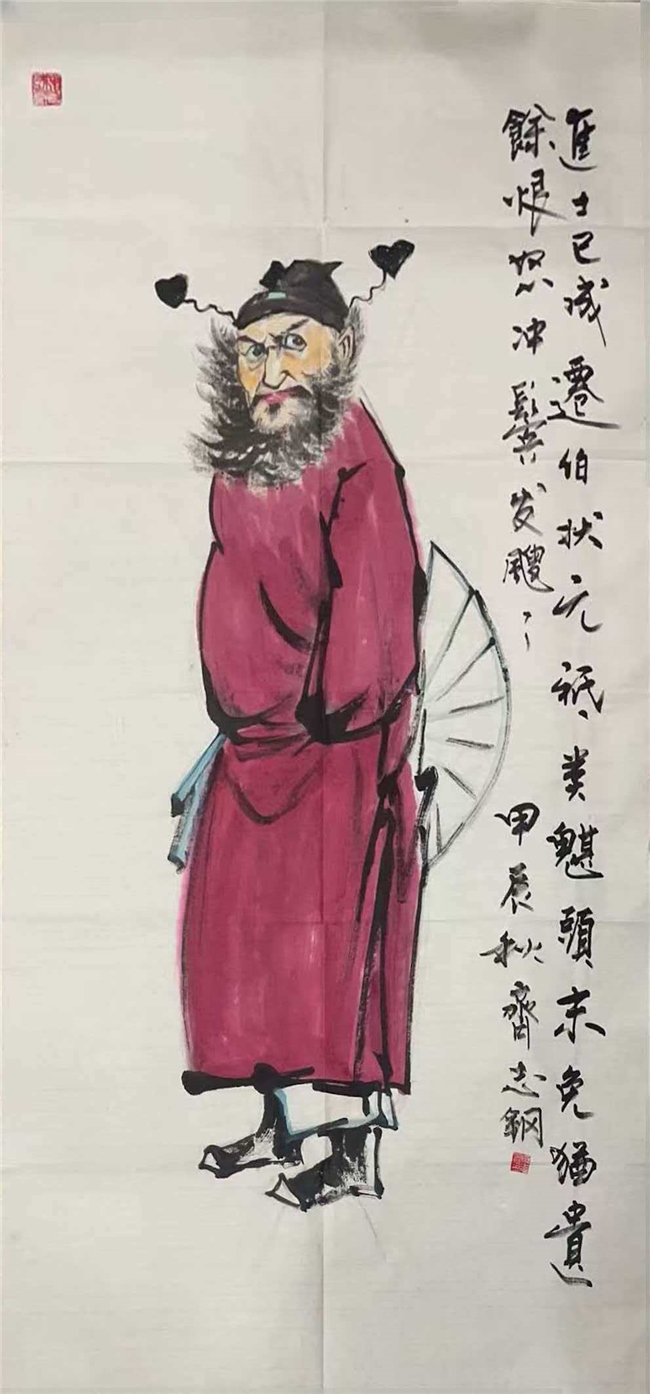 進士已成遷伯状元祇类魁頭未免猶遺
餘恨怒冲鬓发飕〻
甲辰秋齋志鋼